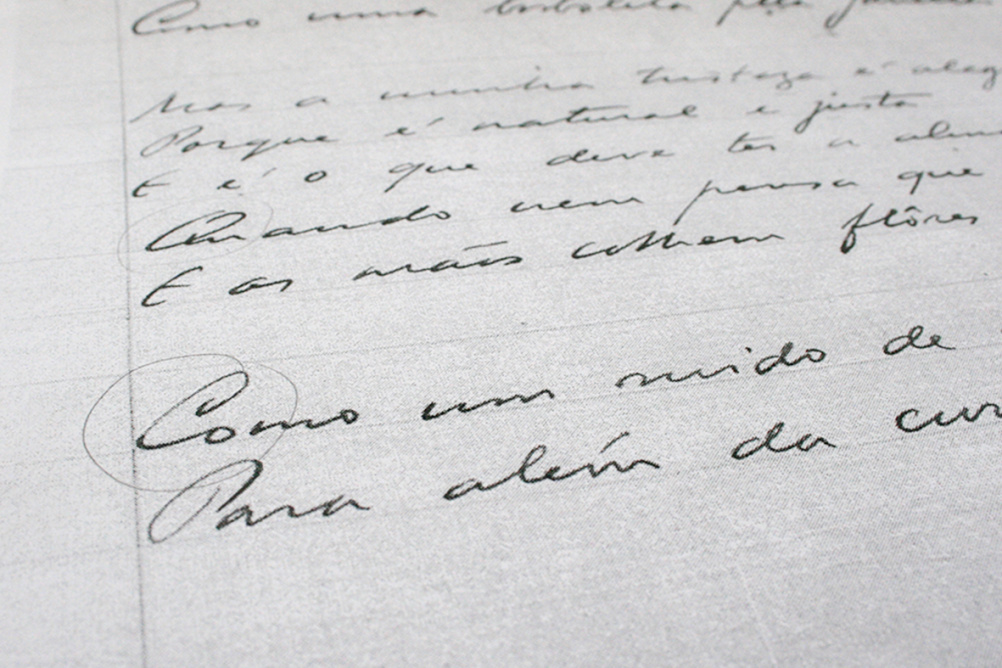 Como uma borboleta pela
Mas a minha tristeza é aleg
Porque é natural e justa
E é o que deve ter a alm
Quando nem pensa que
E as mãos colhem flôres
Como um ruido de
Para além da cur